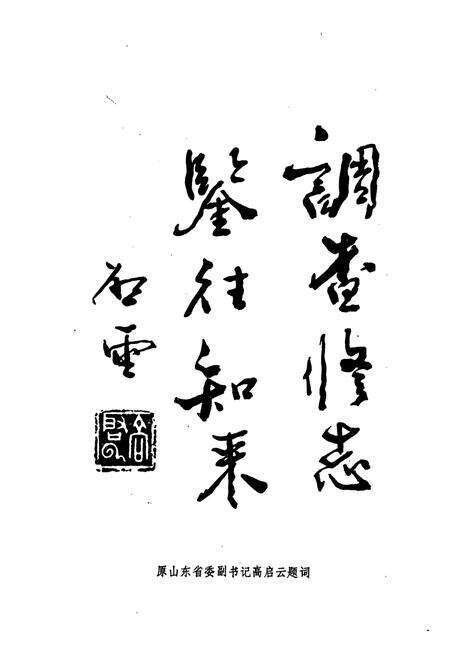 調查修志
鑒往知来
启雲
原山东省委副书记高启云题词